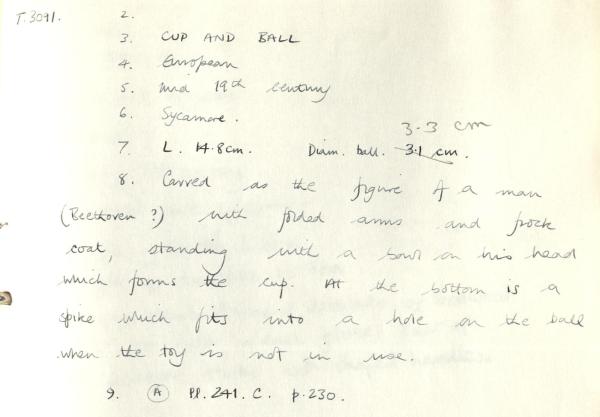 T.3091.
2.
3. CUP AND BALL
4. European
5. mid 19th century
6. Sycamore.
3.3 cm
7. L. 14.8cm. Diam. ball. 3.1 cm.
8. Carved as the figure of a man
(Beethoven?) with folded arms and frock
coat, standing with a bowl on his head
which forms the cup. At the bottom is a
spike which fits into a hole on the ball
when the toy is not in use.
9. A Pl. 241. C. p.230.